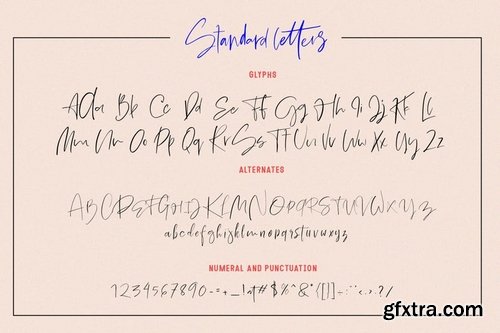 Standard letters
GLYPHS
AOa Bb Cc Dd Ee Ff Gg Hh Ii Jj Kk Ll
Mm Nn Oo Pp Qq Rr Ss Tt Uu Vv Ww Xx Yy Zz
ALTERNATES
ABCDEFGHIJKLMNOPQRSTUVWXYZ
abcdefghijklmnopqrstuvwxyz
NUMERAL AND PUNCTUATION
1234567890
gfxtra.com